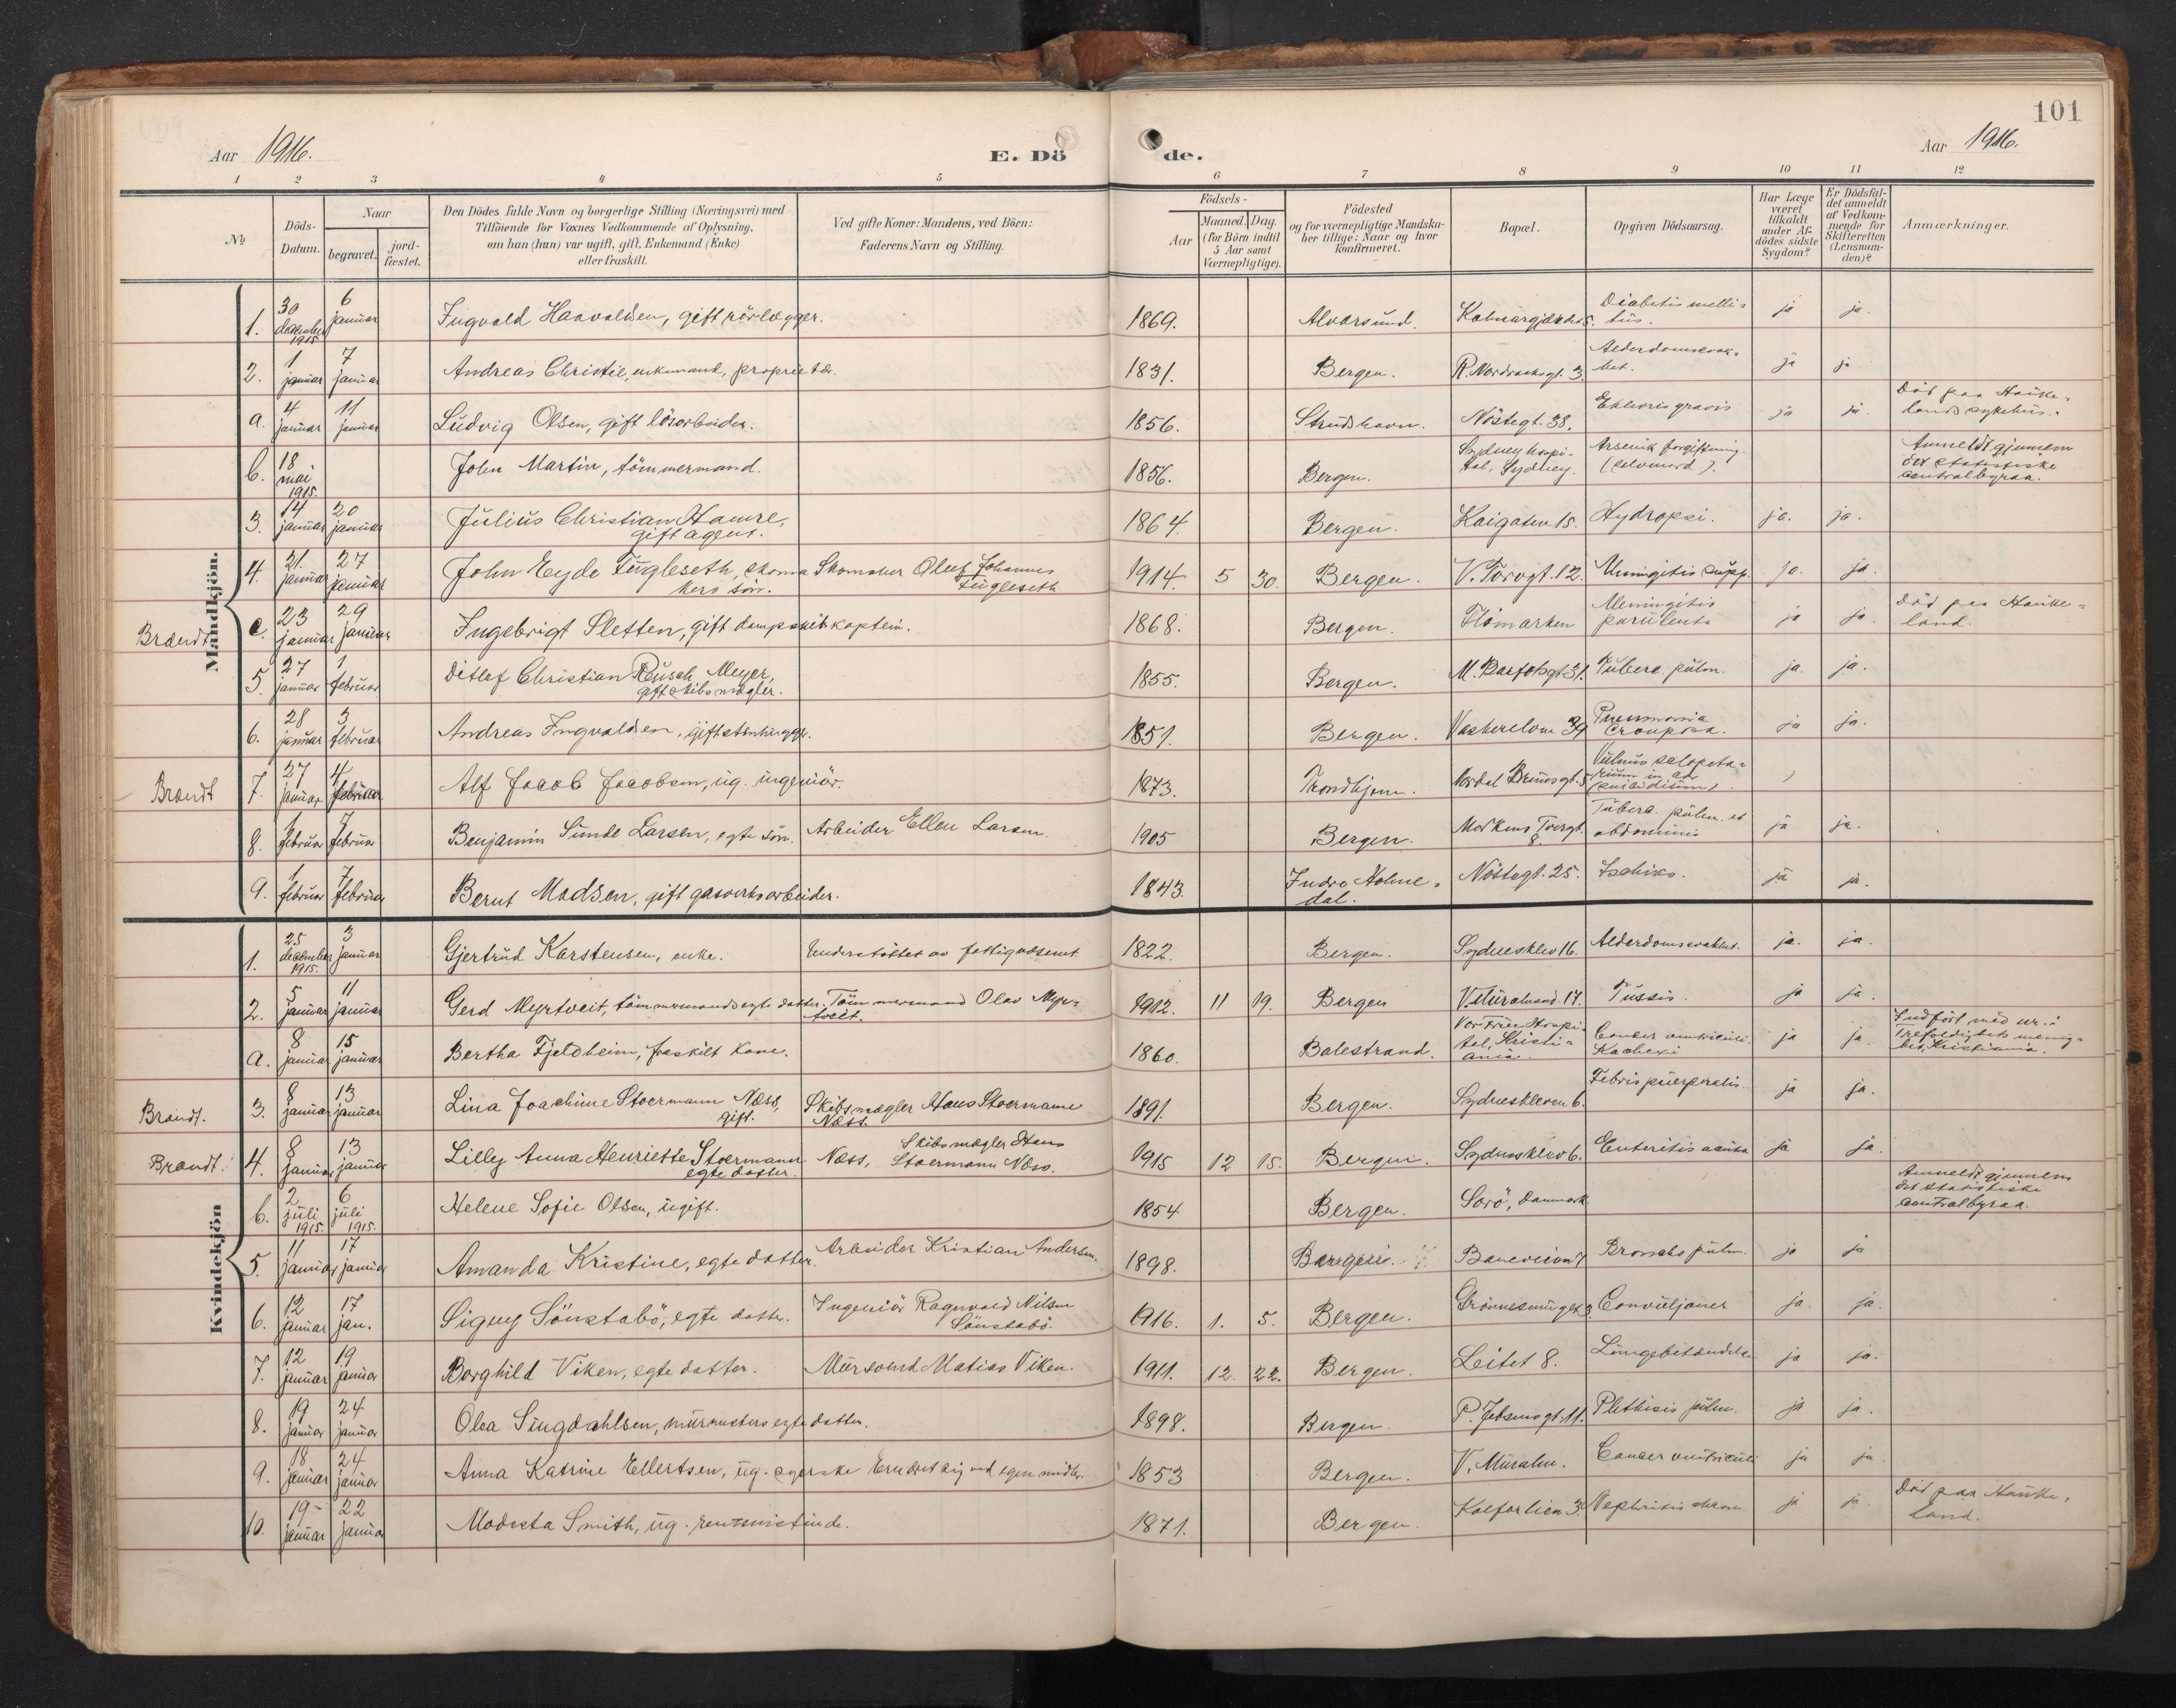 101
Aar 1916. E. Döde. Aar 1916.
1 2 3 4 5 6 7 8 9 10 11 12
№
Döds-Datum.
Naar
begravet.
jord-fæstet.
Den Dödes fulde Navn og borgerlige Stilling (Næringsvei) med
Tilföiende for Voxnes Vedkommende af Oplysning,
om han (hun) var ugift, gift, Enkemand (Enke)
eller fraskilt.
Ved gifte Koner: Mandens, ved Börn:
Faderens Navn og Stilling.
Födsels-
Aar
Maaned. Dag.
(for Börn indtil
5 Aar samt
Værnepligtige).
Födested
og for værnepligtige Mandska-
ber tillige: Naar og hvor
Konfirmeret.
Bopæl.
Opgiven Dödsaarsag.
Har Læge
været
tilkaldt
under Af-
dödes sidste
Sygdom?
Er Dödsfal-
det anmeldt
af Vedkom-
mende for
Skifteretten
(Lensman-
den)?
Anmærkninger.
Mandkjön.
1. 30 december 1915 6 januar Ingvald Haavaldsen, gift rörlægger. 1869. Alversund. Diabetis mellitus. ja ja.
2. 1 januar 7 januar Andreas Christie, enkemand, proprietær. 1831. Bergen. R. Nordraaksgt. 3. ja ja
a. 4 januar 11 januar Ludvig Olsen, gift lösarbeider. 1856. Strudshavn. Nöstegt. 38. ja ja. Död paa Haukelands sykehus.
b. 18 mai 1915. John Martin, tömmermand. 1856. Bergen. Sydney hospital, Sydney. Arsenik forgiftning (selvmord). Anmeldt gjennem det statistiske centralbyraa.
3. 14 januar 20 januar Julius Christian Hamre, gift agent. 1864. Bergen. Kaigaten 15. Hydropsi. ja. ja.
4. 21. januar 27 januar John Eyde Fugleseth, skomakers sön. Skomaker Oluf Johannes Fugleseth 1914 5 30. Bergen. V. Torvgt. 12. ja. ja.
Brændt c. 23 januar 29 januar Ingebrigt Sletten, gift dampskibskaptein. 1868. Bergen. Flömarken Meningitis purulenta ja ja. Död paa Haukeland.
5. 27 januar 1 februar Ditlef Christian Reusch Meyer, gift skibsmægler. 1855. Bergen. Tuberc. pulm. ja. ja.
6. 28 januar 3 februar Andreas Ingvaldsen, gift stenhugger. 1851. Bergen. Pneumonia crouposa. ja ja.
Brændt 7. 27 januar 4 februar Alf Jacob Jacobsen, ug. ingeniör. 1873. Trondhjem. Nordal Brunsgt. 5 Vulnus sclopetarium in cor (suicidium).
8. 1 februar 7 februar Benjamin Sunde Larsen, egte sön. Arbeider Ellen Larsen. 1905 Bergen. Markens Tvergt. 8. Tuberc. pulm. et abdominis ja ja.
9. 1 februar 7 februar Bernt Madsen, gift gasverksarbeider. 1843. Indre Holmedal. Nöstegt. 25. Ischias. ja ja.
Kvindekjön
1. 25 december 1915. 3 januar Gjertrud Karstensen, enke. Understöttet av fattigvæsenet 1822. Bergen. Sydneskleiv 16. Alderdomssvakhet. ja. ja.
2. 5 januar 11 januar Gerd Myrtveit, tömmermands egte datter. Tömmermand Olav Myrtveit. 1912. 11 19. Bergen Tussis. ja ja.
a. 8 januar 15 januar Bertha Fjeldheim, fraskilt kone. 1860. Balestrand. Vor Frue Hospital, Kristiania. Cancer ventriculi. Kachexi ja ja. Indfört med nr. i Trefoldighets menighet, Kristiania.
Brændt. 3. 8 januar 13 januar Lina Joachime Stoermann Næss, gift. Skibsmægler Hans Stoermann Næss. 1891. Bergen. Sydneskleven 6. Febris puerperalis. ja ja.
Brændt. 4. 8 januar 13 januar Lilley Anna Henriette Stoermann Næss, egte datter. Skibsmægler Hans Stoermann Næss. 1915 12 15. Bergen. Sydneskleiv 6. Enteritis acuta ja ja.
b. 2 juli 1915. 6 juli 1915. Helene Sofie Olsen, ugift. 1854 Bergen. Sorö, Danmark Anmeldt gjennem det statistiske centralbyraa.
5. 11 januar 17 januar Amanda Kristine, egte datter. Arbeider Kristian Andersen. 1898. Baneveien 7 ja ja
6. 12 januar 17 jan. Signy Sönstabö, egte datter. Ingeniör Ragnvald Nilsen Sönstabö. 1916. 1. 5. Bergen. Convulsjoner ja. ja.
7. 12 januar 19 januar Borghild Viken, egte datter. Mursvend Matias Viken. 1911. 12. 22. Bergen. Leitet 8. Lungebetændelse ja ja.
8. 19 januar 24 januar Olea Singdahlsen, murmesters egte datter. 1898. Bergen. P. Jebsensgt. 11. Phthisis pulm. ja ja.
9. 18 januar 24 januar Anna Katrine Ellertsen, ug. syerske Ernæret sig ved egne midler. 1853 Bergen. V. Muralm. Cancer ventriculi ja ja
10. 19 januar 22 januar Modesta Smith, ug. rentenistinde. 1871. Bergen. Kalfarlien 3. Nephritis chron. ja ja. Död paa Haukeland.